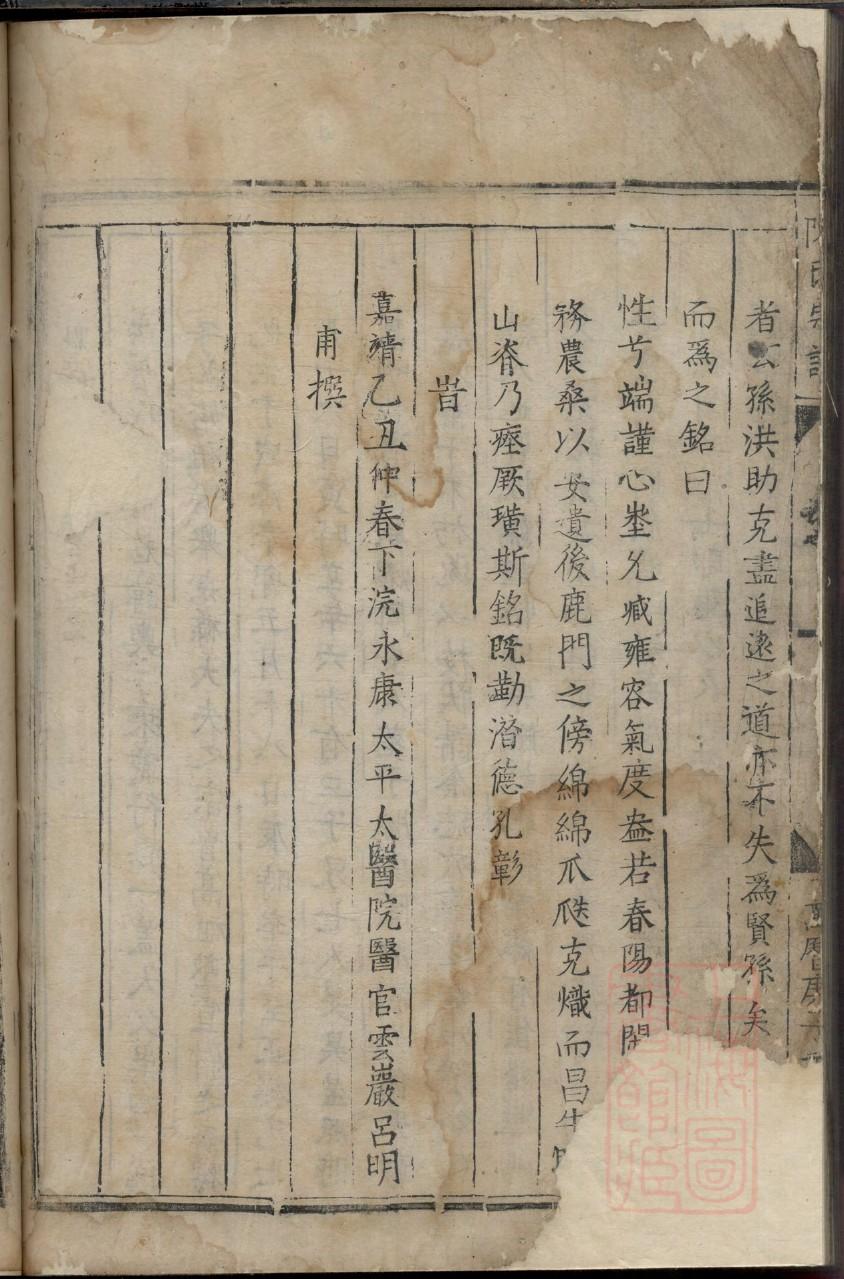 者玄孫洪助克盡追逺之道亦不失為賢孫矣
而為之銘曰
性兮端謹心兮允臧雍容氣度盎若春陽都閑
務農桑以安遺後鹿門之傍綿綿瓜瓞克熾而昌牛
山脊乃瘞厥璜斯銘既勒潛德孔彰
旹
嘉靖乙丑仲春下浣永康太平太醫院醫官雲巖呂明
甫撰